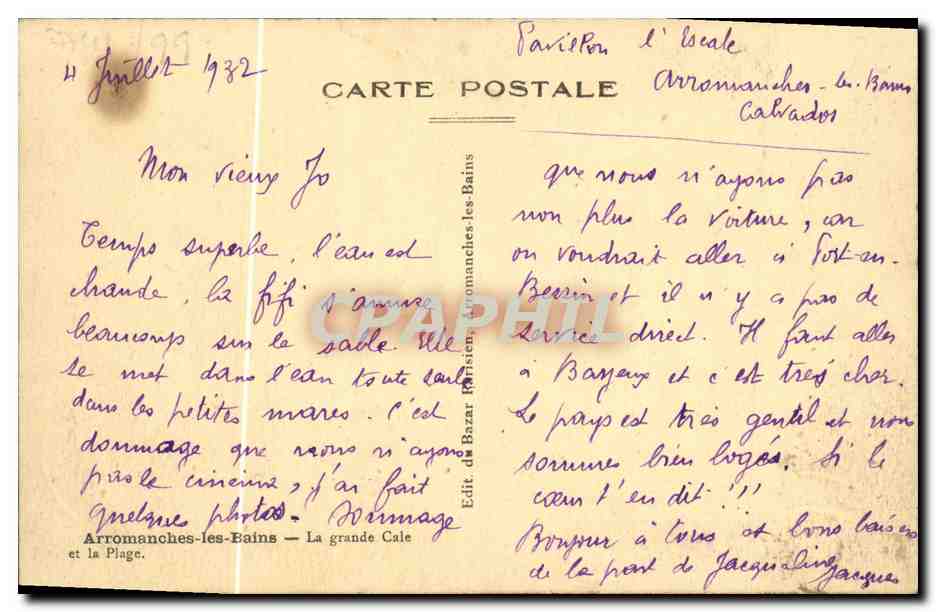 4 Juillet 1932
Pavillon l'Escale
Arromanches-les-Bains
Calvados
CARTE POSTALE
Mon vieux Jo
Temps superbe, l'eau est
chaude, la fifi s'amuse
beaucoup sur le sable Elle
se met dans l'eau toute seule
dans les petites mares. C'est
dommage que nous n'ayons
pas le cinema, j'ai fait
quelques photos - Dommage
Arromanches-les-Bains — La grande Cale
et la Plage.
Edit. du Bazar Parisien, Arromanches-les-Bains
que nous n'ayons pas
non plus la voiture, car
on voudrait aller à Port-en-
Bessin et il n'y a pas de
service direct. Il faut aller
à Bayeux et c'est très cher.
Le pays est très gentil et nous
sommes bien logés. Si le
cœur t'en dit!!!
Bonjour à tous et bons baisers
de la part de Jacqueline
Jacques
CPAPHIL